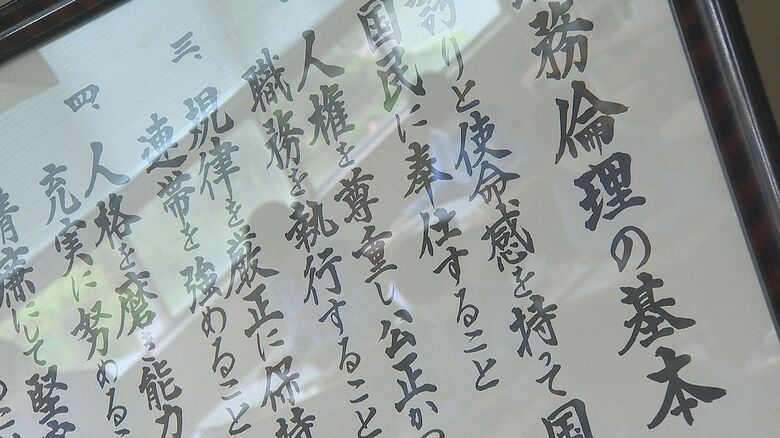 務倫理の基本
誇りと使命感を持って国
国民に奉仕すること
人権を尊重し公正かつ
職務を執行すること
三、規律を厳正に保持
連帯を強めること
四、人格を磨き能力
充実に努めるこ
清廉にして堅